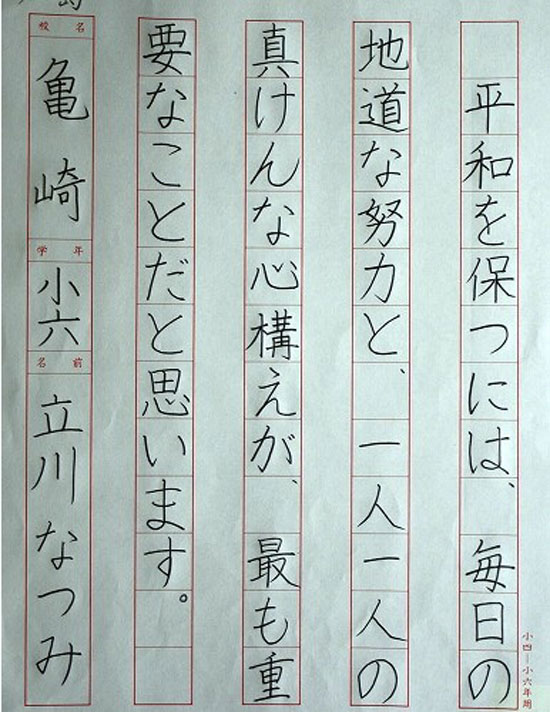 平和を保つには、毎日の
地道な努力と、一人一人の
真けんな心構えが、最も重
要なことだと思います。
校名
亀崎
学年
小六
名前
立川なつみ
小四—小六年用